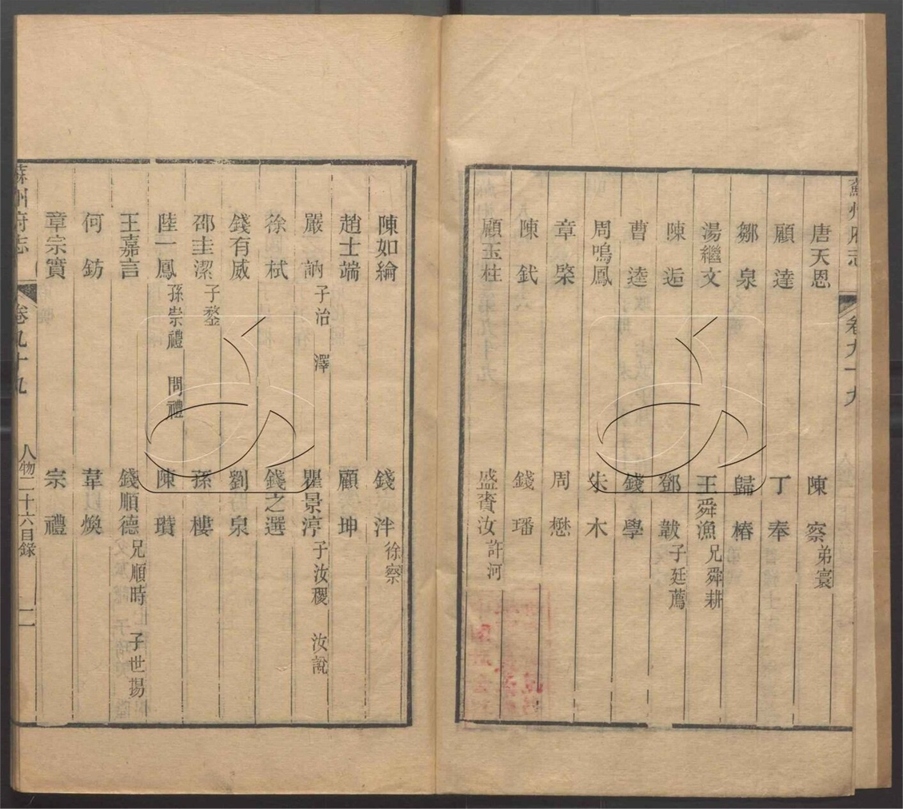 蘇州府志 卷九十九
唐天恩 陳察 弟寰
顧達 丁奉
鄒泉 歸椿
湯繼文 王舜漁 兄舜耕
陳逅 鄧韍 子廷薦
曹逵 錢學
周鳴鳳 朱木
章棨 周懋
陳鉽 錢璠
顧玉柱 盛賚汝 許河
陳如綸 錢泮 徐察
趙士端 顧坤
嚴訥 子治 澤 瞿景淳 子汝稷 汝說
徐栻 錢之選
錢有威 劉泉
邵圭潔 子鏊 孫樓
陸一鳳 孫崇禮 問禮 陳瓚
王嘉言 錢順德 兄順時 子世揚
何鈁 韋煥
章宗實 宗禮
蘇州府志 卷九十九 人物二十六目錄 一